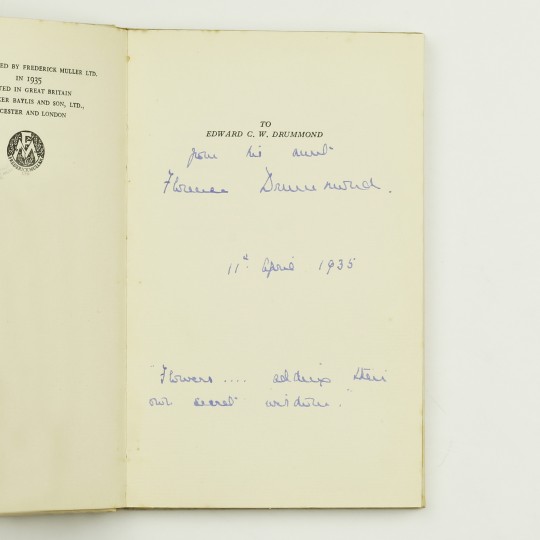 ED BY FREDERICK MULLER LTD.
IN 1935
TED IN GREAT BRITAIN
ER BAYLIS AND SON, LTD.,
CESTER AND LONDON
FREDERICK MULLER
TO
EDWARD C. W. DRUMMOND
from his aunt
Florence Drummond.
11th April 1935
"Flowers .... their
own secret wisdom."